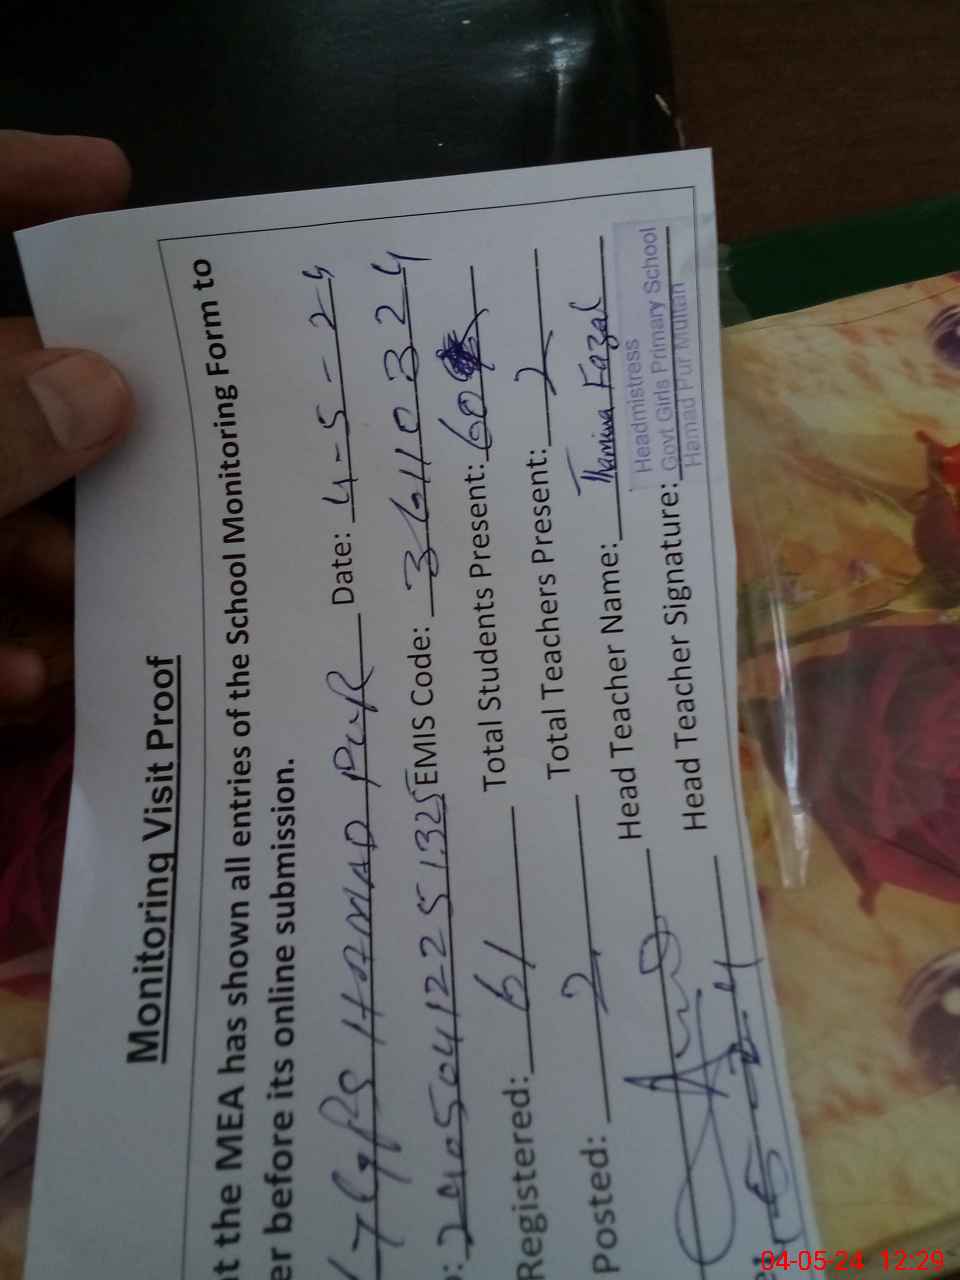 Monitoring Visit Proof
at the MEA has shown all entries of the School Monitoring Form to
er before its online submission.
HAMAD PUR Date: 4-5-24
EMIS Code: 36110324
Registered: 61 Total Students Present: 60
Posted: 2 Total Teachers Present: 2
Head Teacher Name: Thamina Fazal
Head Teacher Signature:
Headmistress
Govt Girls Primary School
Hamad Pur Multan
04-05-24 12:29